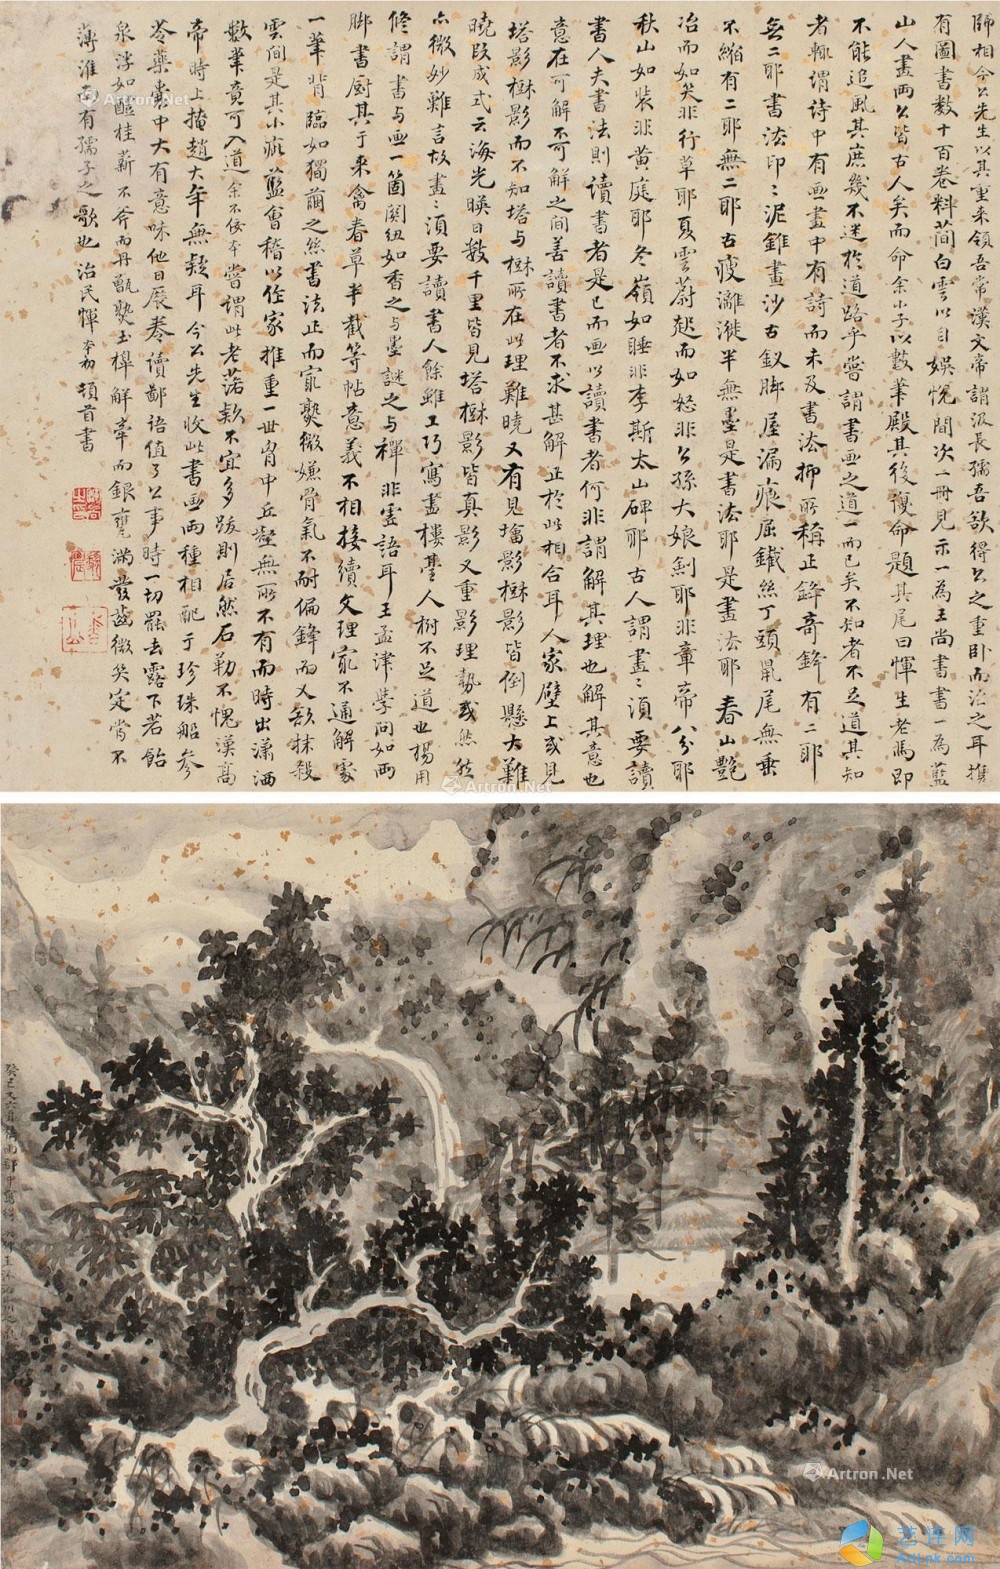 師相今公先生以其重來領吾常漢文帝謂汲長孺吾欲得公之重卧而治之耳攜
有圖書數十百卷料簡白雲以自娛悅間次一冊見示一為王尚書書一為藍
山人畫兩公皆古人矣而命余小子以數筆殿其後復命題其尾曰惲生老馬即
不能追風其庶幾不迷於道路乎嘗謂書畫之道一而已矣不知者不足道其知
者輒謂詩中有画畫中有詩而未及書法抑所稱正鋒奇鋒有二耶
無二耶書法印印泥錐畫沙古釵脚屋漏痕屈鐵絲丁頭鼠尾無垂
不縮有二耶無二耶古瘦漓漇半無墨是書法耶是畫法耶春山艷
冶而如笑非行草耶夏雲蔚起而如怒非公孫大娘劍耶非章帝八分耶
秋山如裝非黃庭耶冬嶺如睡非李斯太山碑耶古人謂畫畫須要讀
書人夫書法則讀書者是已而画以讀書者何非謂解其理也解其意也
意在可解不可解之間善讀書者不求甚解正於此相合耳人家壁上或見
塔影樹影而不知塔与樹所在此理難曉又有見墻影樹影皆倒懸大難
曉段成式云海光暎日數千里皆見塔樹影皆真影又重影理勢或然
亦微妙難言故畫畫須要讀書人餘雖工巧寫畫樓臺人樹不足道也楊用
脩謂書与画一箇関紐如香之与墨謎之与禪非寱語耳王孟津學問如兩
脚書厨其于來禽春草半截等帖意義不相接續文理㝡不通解處
一筆背臨如獨繭之絲書法正而㝡媺微嫌骨氣不耐偏鋒而又欲抹殺
雲間是其小疵藍會稽以作家推重一世胷中丘壑無所不有而時出瀟洒
數筆竟可入道余不佞本嘗謂此老落欵不宜多跋則居然石勒不愧漢高
帝時上掩趙大年無疑耳今公先生收此書画兩種相配于珍珠船參
苓藥裹中大有意味他日展卷讀鄙語值了公事時一切罷去露下若飴
泉浮如醴桂薪不斧而丹甑爨玉櫸解牽而銀甕滿發齒微笑定當不
薄淮南有孺子之歌也治民惲本初頓首書
Artron.Net
Artron.Net
Artron.Net
艺连网
ArtLnk.com